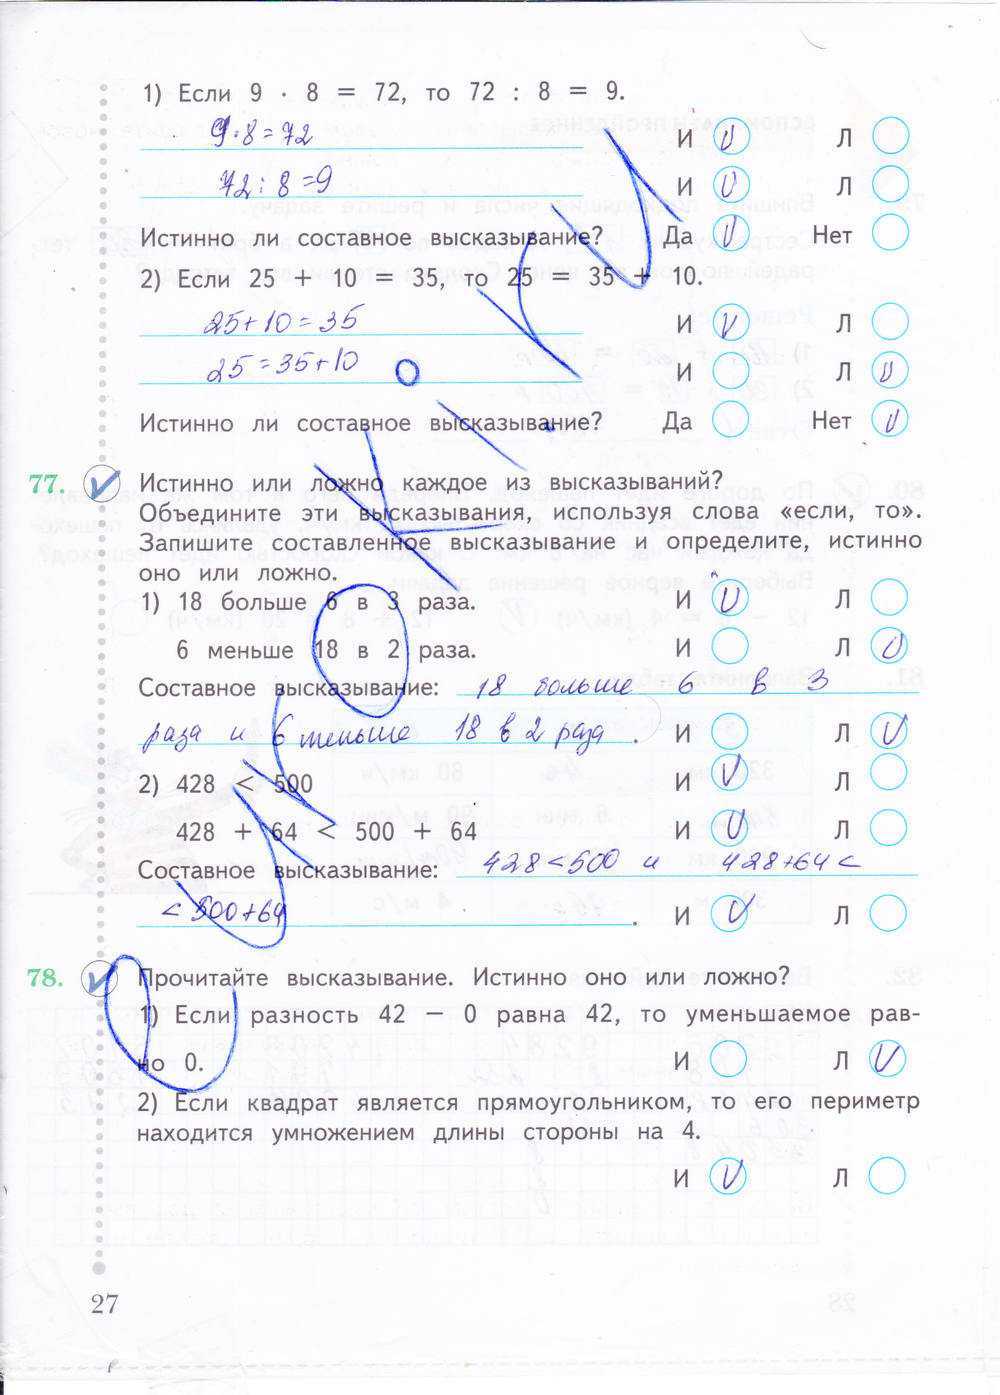 1) Если 9 · 8 = 72, то 72 : 8 = 9.
9·8=72 И V Л
72:8=9 И V Л
Истинно ли составное высказывание? Да V Нет
2) Если 25 + 10 = 35, то 25 = 35 + 10.
25+10=35 И V Л
25=35+10 И Л V
Истинно ли составное высказывание? Да Нет V
77. Истинно или ложно каждое из высказываний?
Объедините эти высказывания, используя слова «если, то».
Запишите составленное высказывание и определите, истинно
оно или ложно.
1) 18 больше 6 в 3 раза. И V Л
6 меньше 18 в 2 раза. И Л V
Составное высказывание: 18 больше 6 в 3
раза и 6 меньше 18 в 2 раза . И Л V
2) 428 < 500 И V Л
428 + 64 < 500 + 64 И V Л
Составное высказывание: 428<500 и 428+64<
<500+64 . И V Л
78. Прочитайте высказывание. Истинно оно или ложно?
1) Если разность 42 – 0 равна 42, то уменьшаемое рав-
но 0. И Л V
2) Если квадрат является прямоугольником, то его периметр
находится умножением длины стороны на 4.
И V Л
27